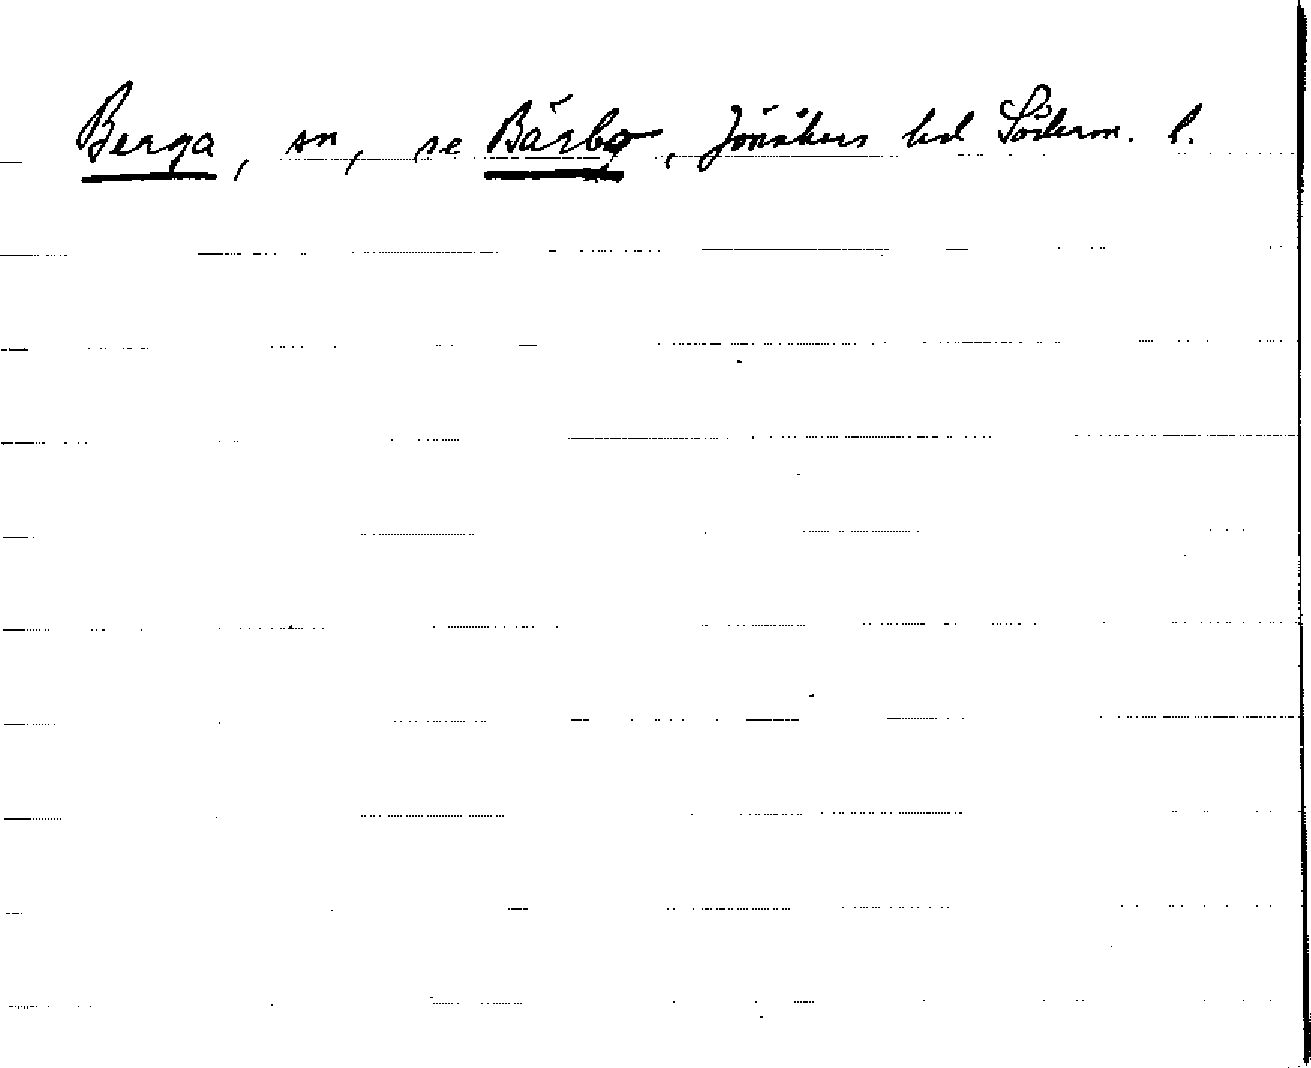 Berga, sn, se Bärbo, Jönåkers hd Söderm. l.